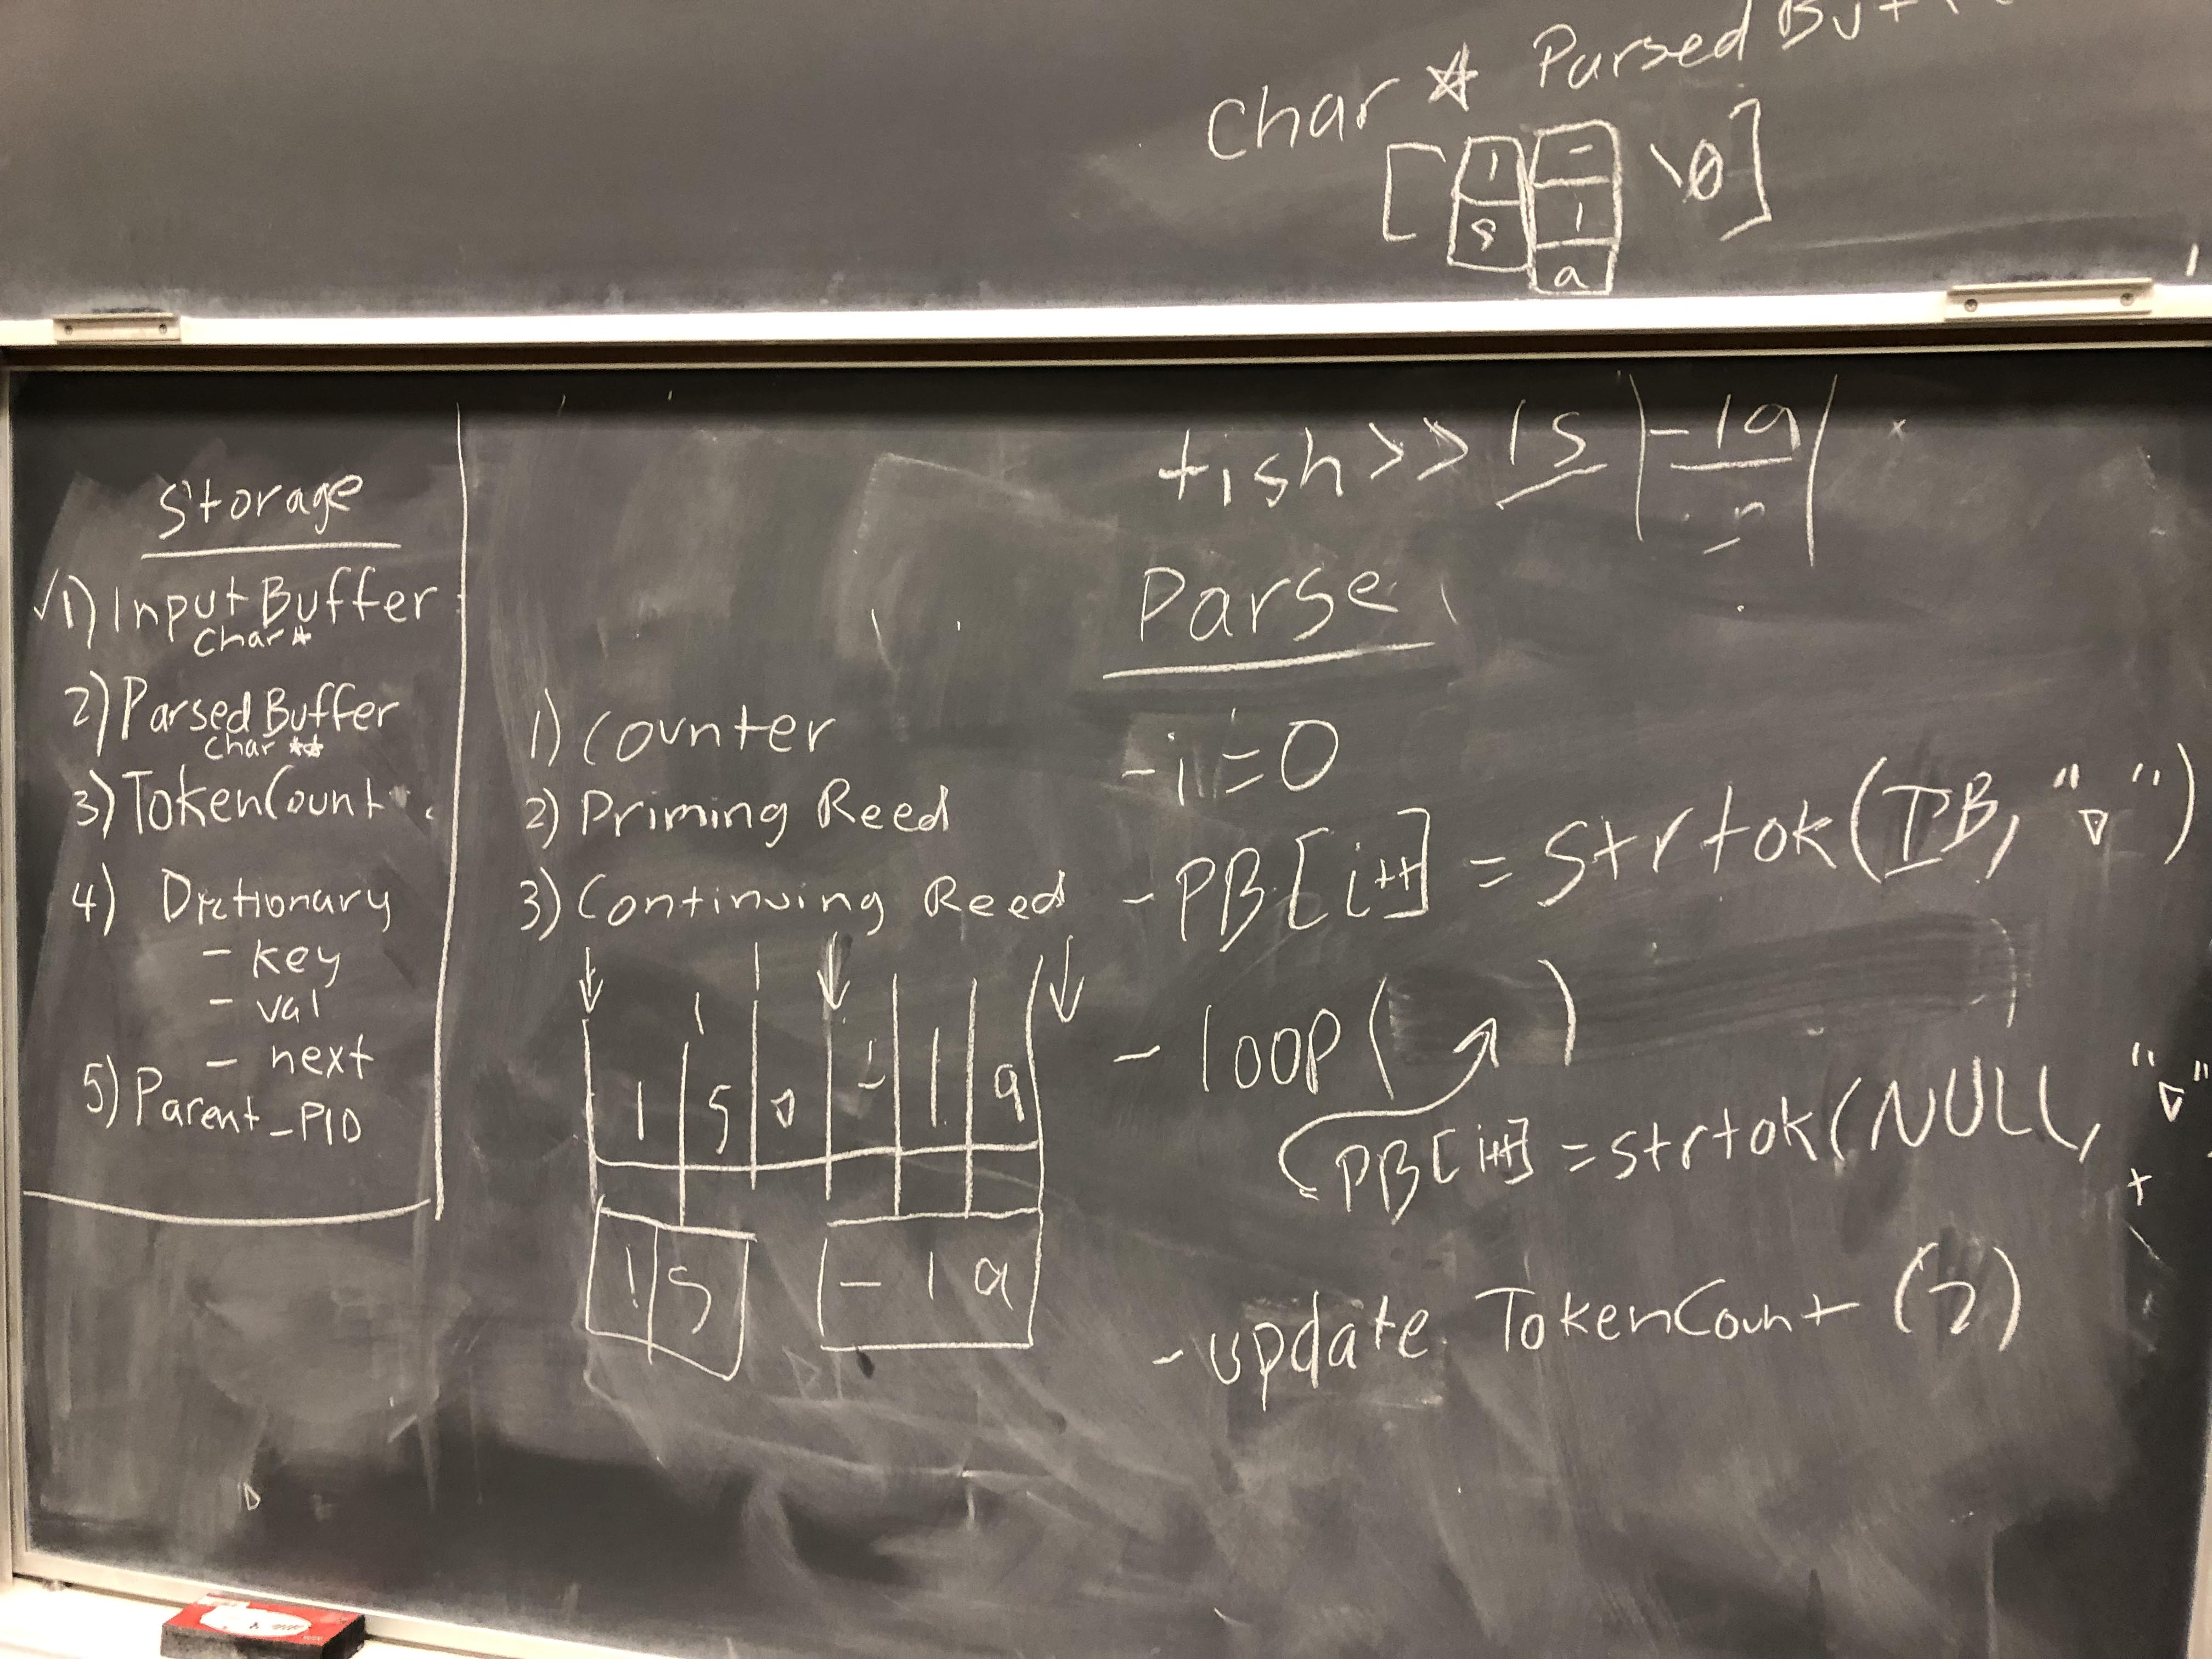 Char * Parsed Buf
[ l - \0 ]
s l
a
tish >> ls | -la |
Storage
√1) InputBuffer
Char *
2) ParsedBuffer
Char **
3) TokenCount
4) Dictionary
- key
- val
- next
5) Parent_PID
1) Counter
2) Priming Reed
3) Continuing Reed
l s ▽ - l a
l s - l a
Parse
- i = 0
- PB[i++] = strtok(IB, "▽")
- loop( )
PB[i++] = strtok(NULL, "▽"
- update TokenCount (2)